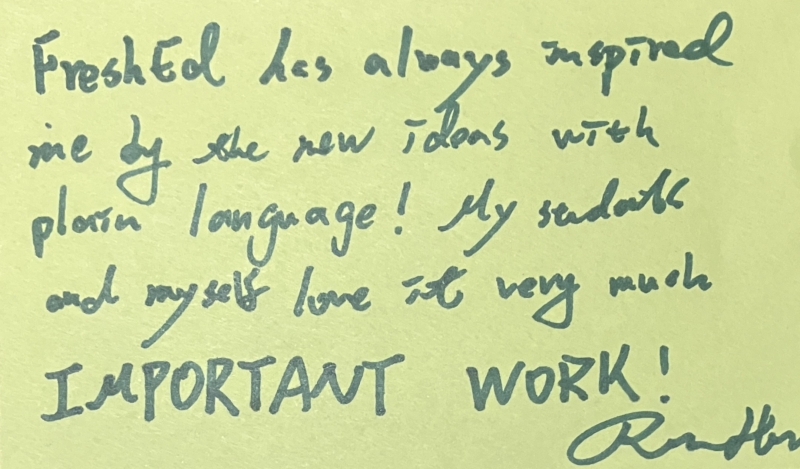 FreshEd has always inspired
me by the new ideas with
plain language! My students
and myself love it very much
IMPORTANT WORK!